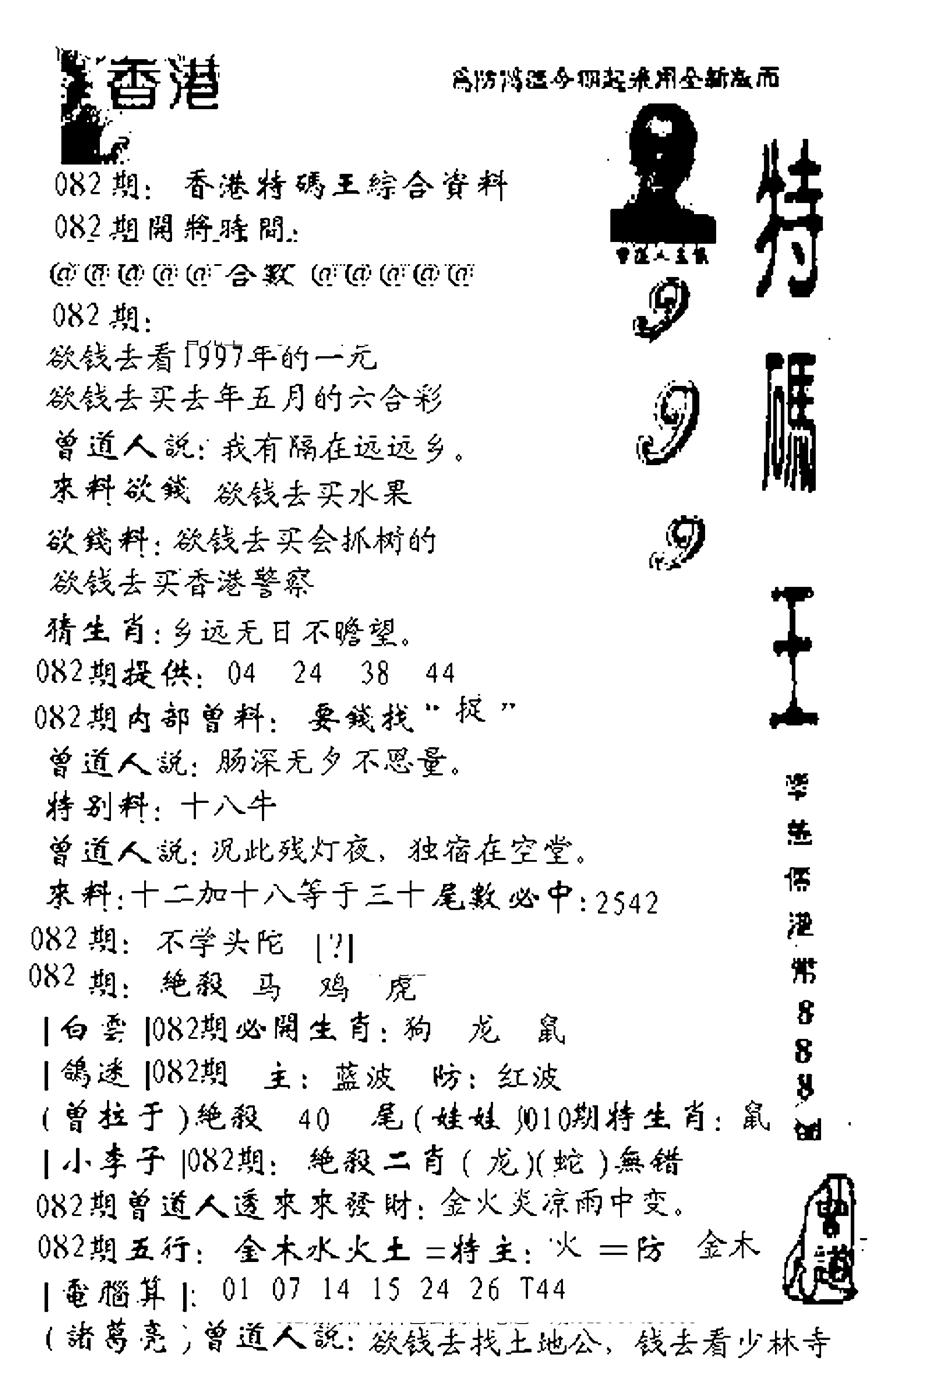 香港
為防偽造今期起采用全新版面
082期: 香港特碼王綜合資料
082期開將時間:
@@@@@合数@@@@@
082期:
欲钱去看1997年的一元
欲钱去买去年五月的六合彩
曾道人説: 我有隔在远远乡。
來料欲錢 欲钱去买水果
欲錢料: 欲钱去买会抓树的
欲钱去买香港警察
猜生肖: 乡远无日不瞻望。
082期提供: 04 24 38 44
082期内部曾料: 要錢找“捉”
曾道人説: 肠深无夕不思量。
特别料: 十八牛
曾道人説: 况此残灯夜，独宿在空堂。
來料: 十二加十八等于三十尾數必中: 2542
082期: 不学头陀 [?]
082期: 絶殺 马 鸡 虎
|白雲|082期必開生肖: 狗 龙 鼠
|鴿迷|082期 主: 蓝波 防: 红波
(曾拉于)絶殺 40 尾(娃娃)010期特生肖: 鼠
|小李子|082期: 絶殺二肖(龙)(蛇)無错
082期曾道人透來來發財: 金火炎凉雨中变。
082期五行: 金木水火土=特主: 火 =防 金木
|電腦算|: 01 07 14 15 24 26 T44
(諸葛亮)曾道人説: 欲钱去找土地公，钱去看少林寺
9
9
9
特碼王
港幣888
曾道